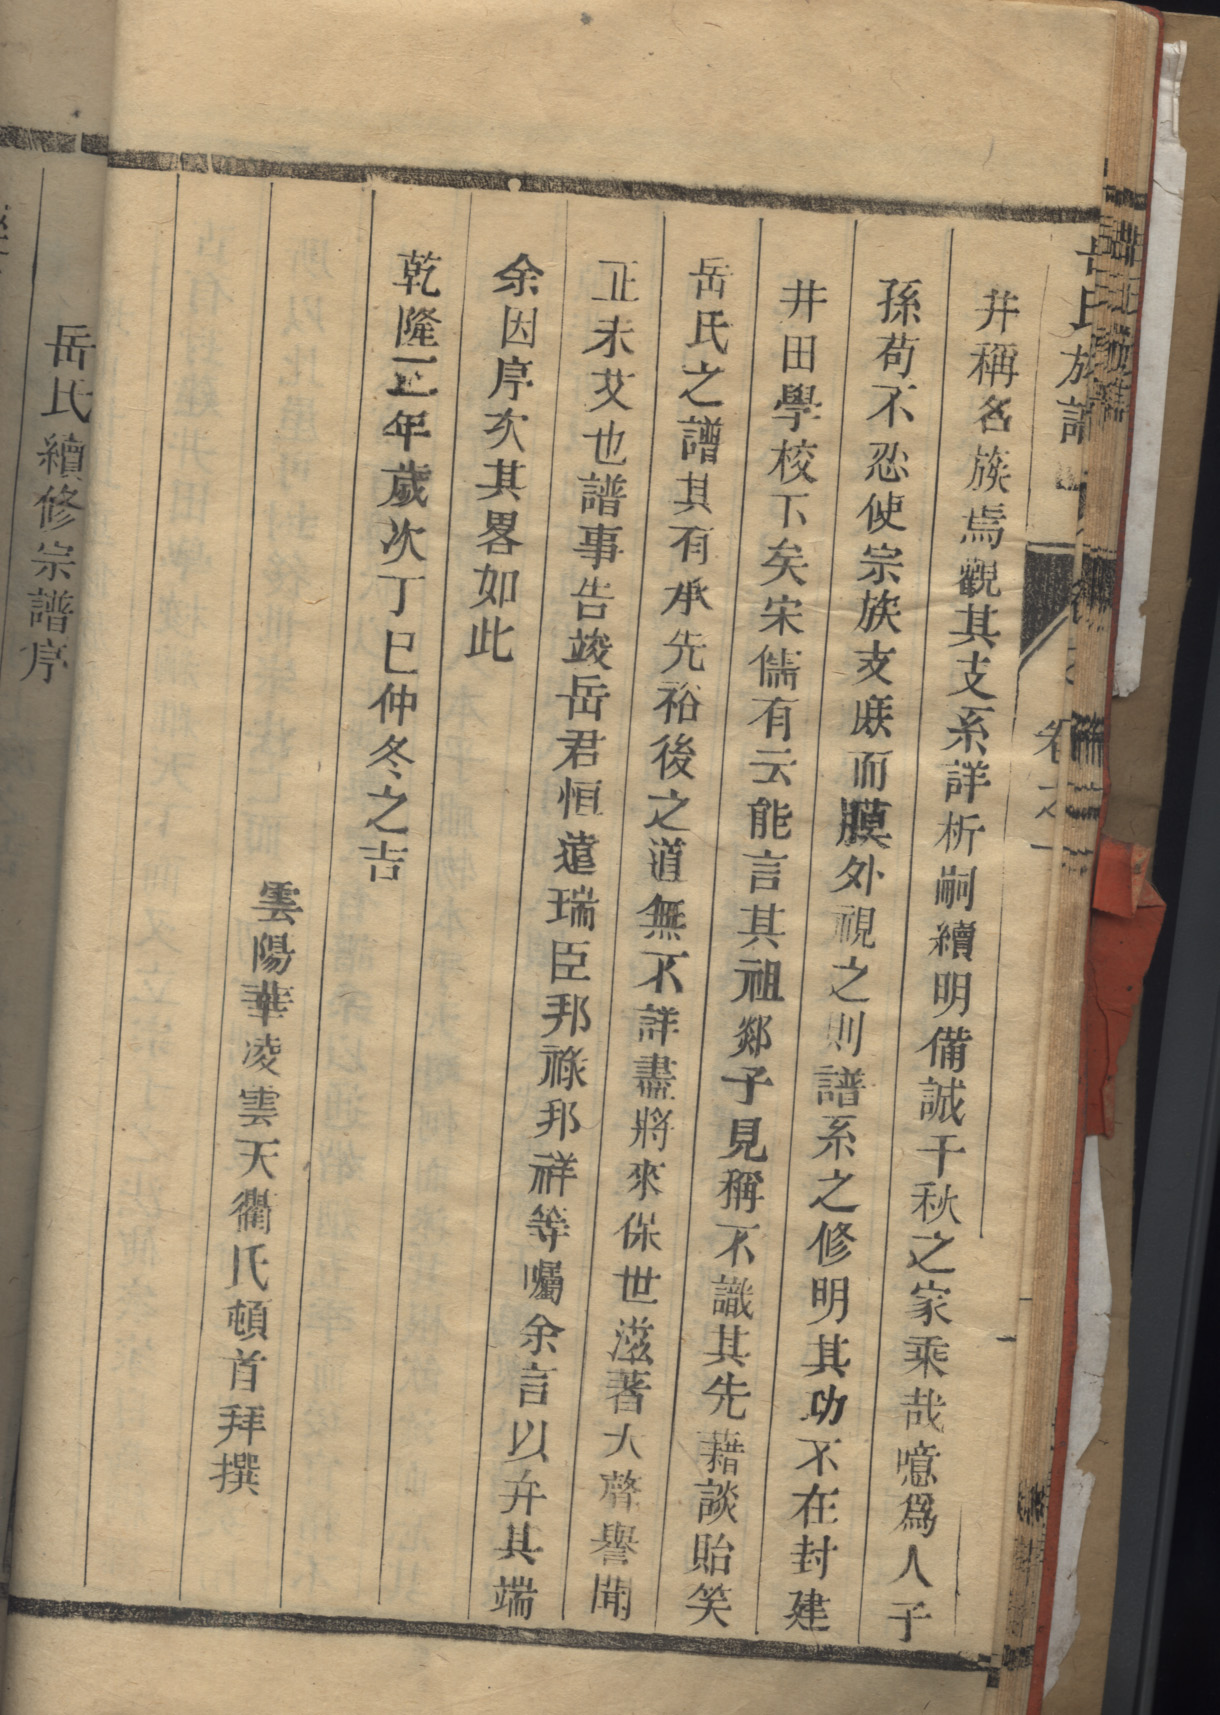 岳氏族譜
卷之一
并稱名族焉觀其支系詳析嗣續明備誠千秋之家乘哉噫爲人子
孫苟不忍使宗族支庶而膜外視之則譜系之修明其功不在封建
井田學校下矣宋儒有云能言其祖郯子見稱不識其先藉談貽笑
岳氏之譜其有承先裕後之道無不詳盡將來保世滋著大聲譽聞
正未艾也譜事告竣岳君恒遠瑞臣邦祿邦祥等囑余言以弁其端
余因序次其畧如此
乾隆二年歲次丁巳仲冬之吉
雲陽華凌雲天衢氏頓首拜撰
岳氏續修宗譜序